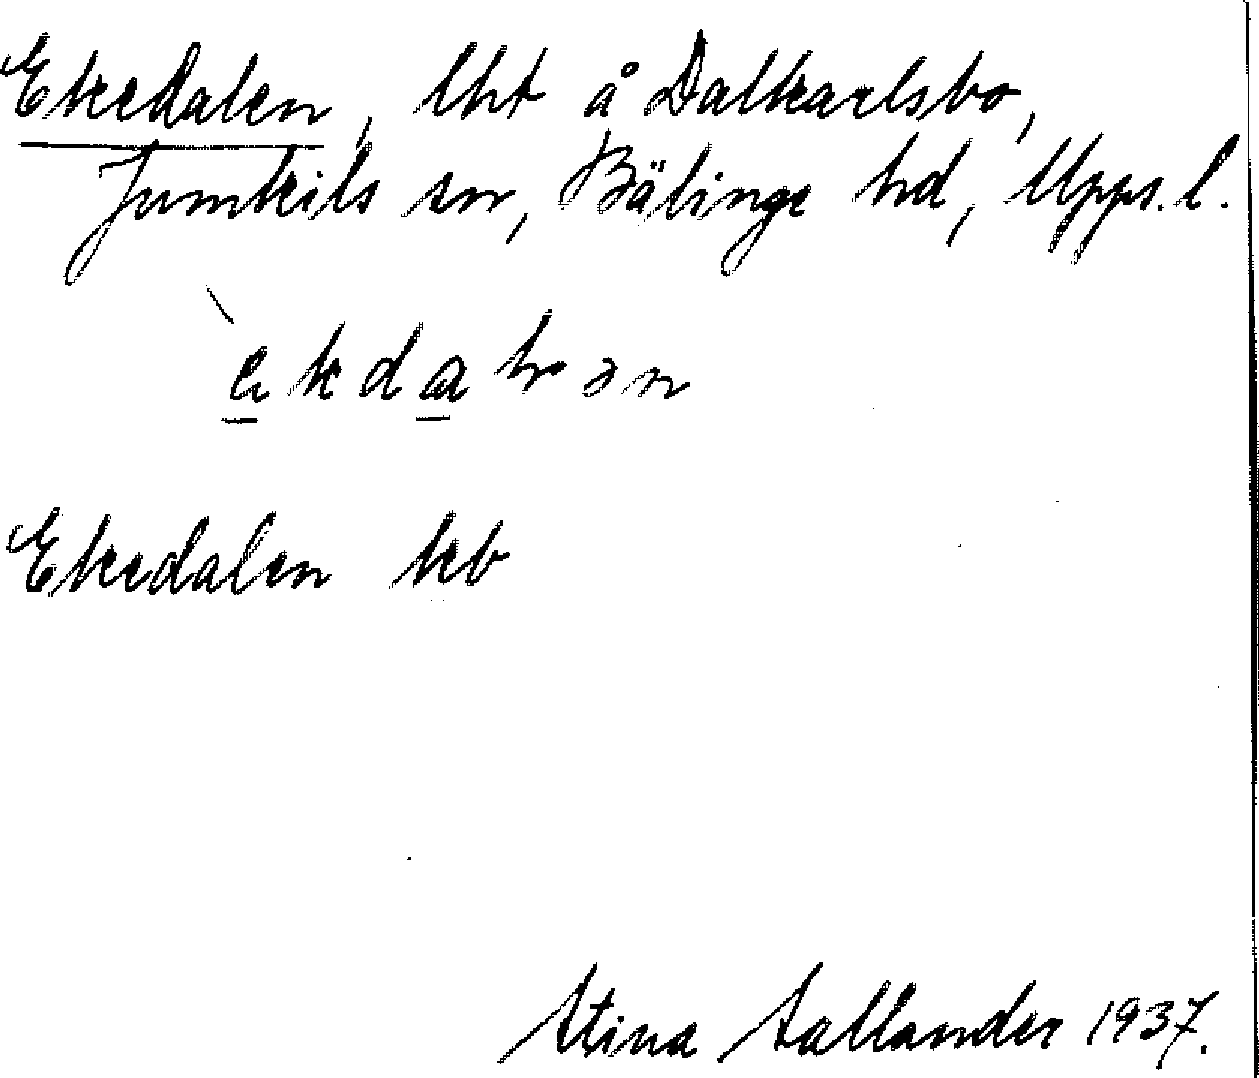 Ekedalen, lht å Dalkarlsbo,
Jumkils sn, Bälinge hd, Upps. l.
Ekedalen kb
Stina Sallander 1937.